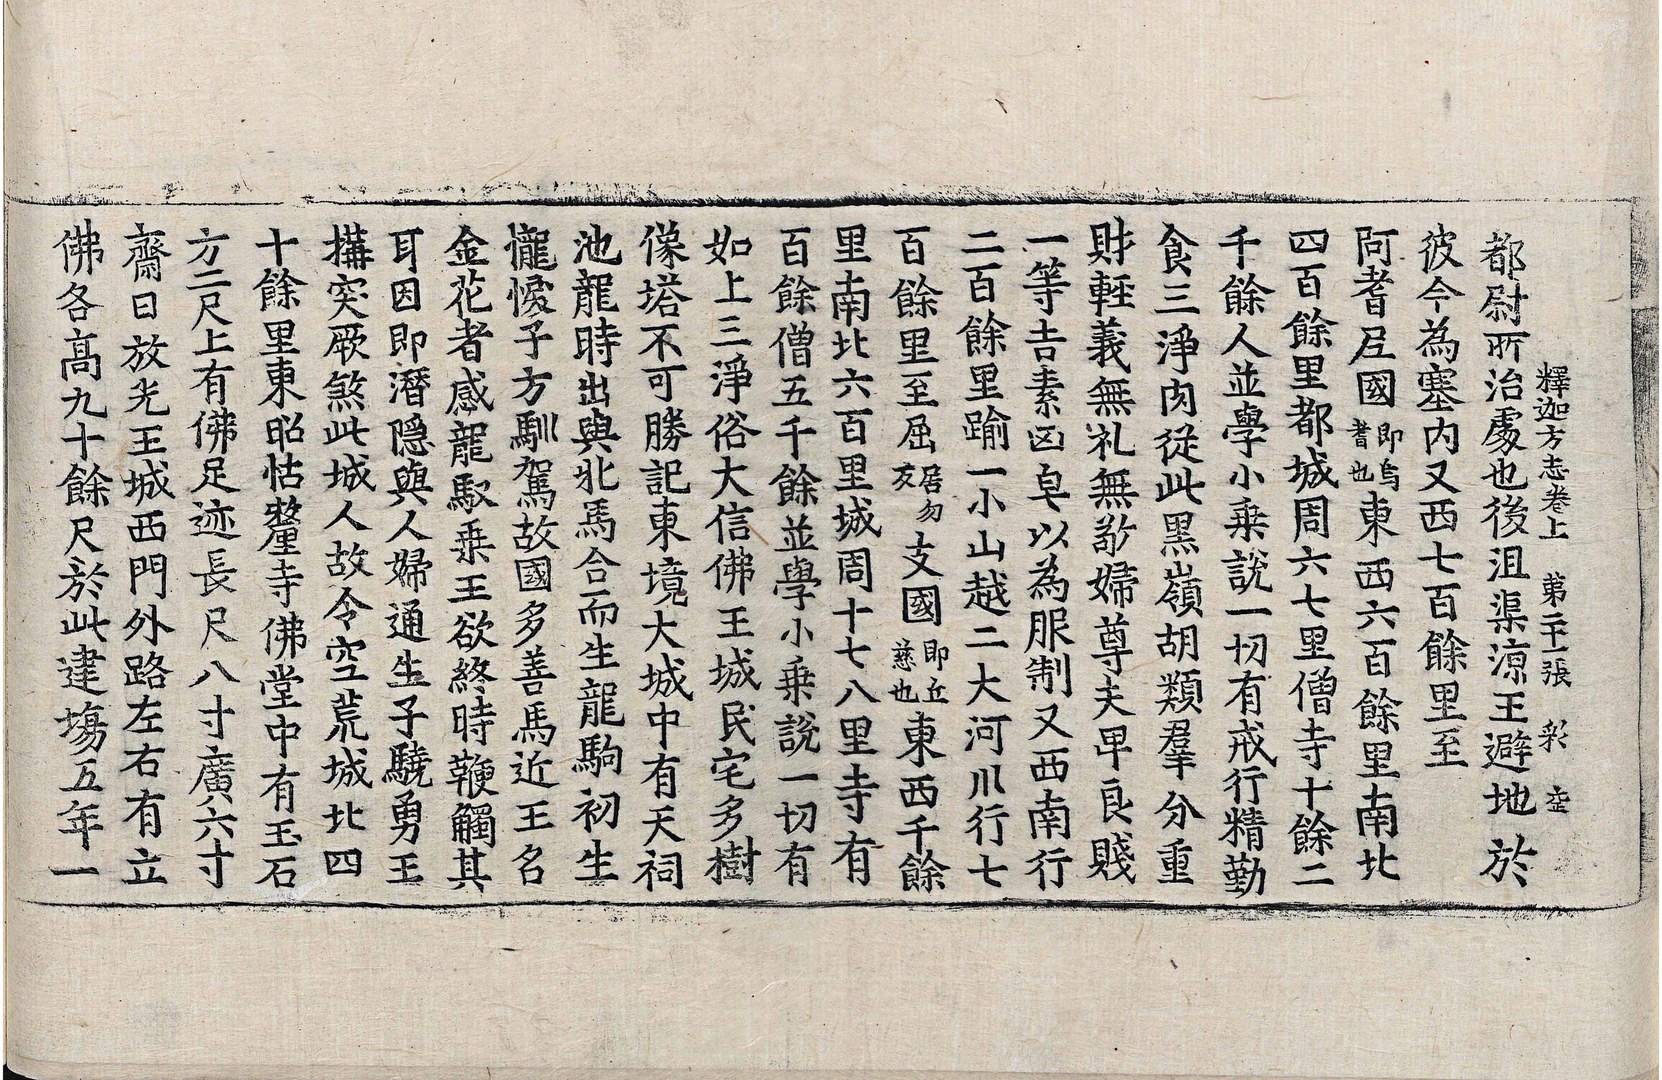 都尉所治處也後沮渠涼王避地於
釋迦方志卷上 第二十張 彩
彼今為塞内又西七百餘里至
阿耆尼國即烏耆也東西六百餘里南北
四百餘里都城周六七里僧寺十餘二
千餘人並學小乗說一切有戒行精勤
食三淨肉従此黑嶺胡類羣分重
財輕義無礼無敬婦尊夫卑良賤
一等吉素凶皁以為服制又西南行
二百餘里踰一小山越二大河川行七
百餘里至屈居勿支國即丘慈也東西千餘
里南北六百里城周十七八里寺有
百餘僧五千餘並學小乗說一切有
如上三淨俗大信佛王城民宅多樹
像塔不可勝記東境大城中有天祠
池龍時出與牝馬合而生龍駒初生
憹悷子方馴駕故國多善馬近王名
金花者感龍馭乗王欲終時鞭觸其
耳因即潛隠與人婦通生子驍勇王
搆突厥煞此城人故令空荒城北四
十餘里東昭怙釐寺佛堂中有玉石
方二尺上有佛足迹長尺八寸廣六寸
齋日放光王城西門外路左右有立
佛各高九十餘尺於此建場五年一